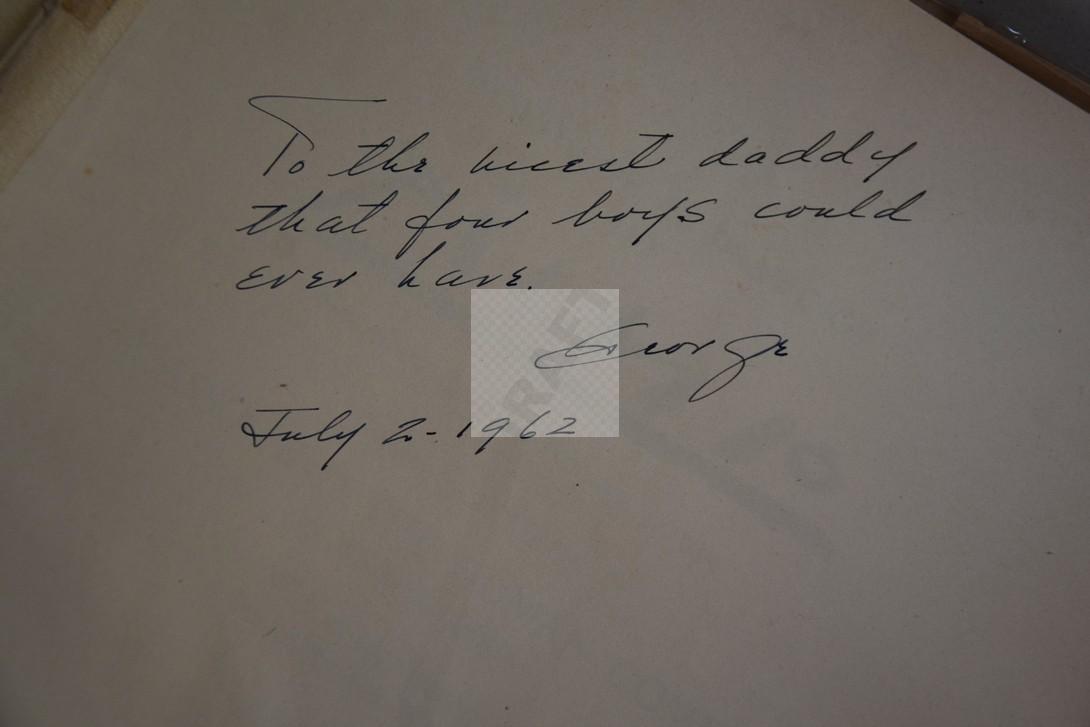 To the nicest daddy
that four boys could
ever have.
George
July 2-1962